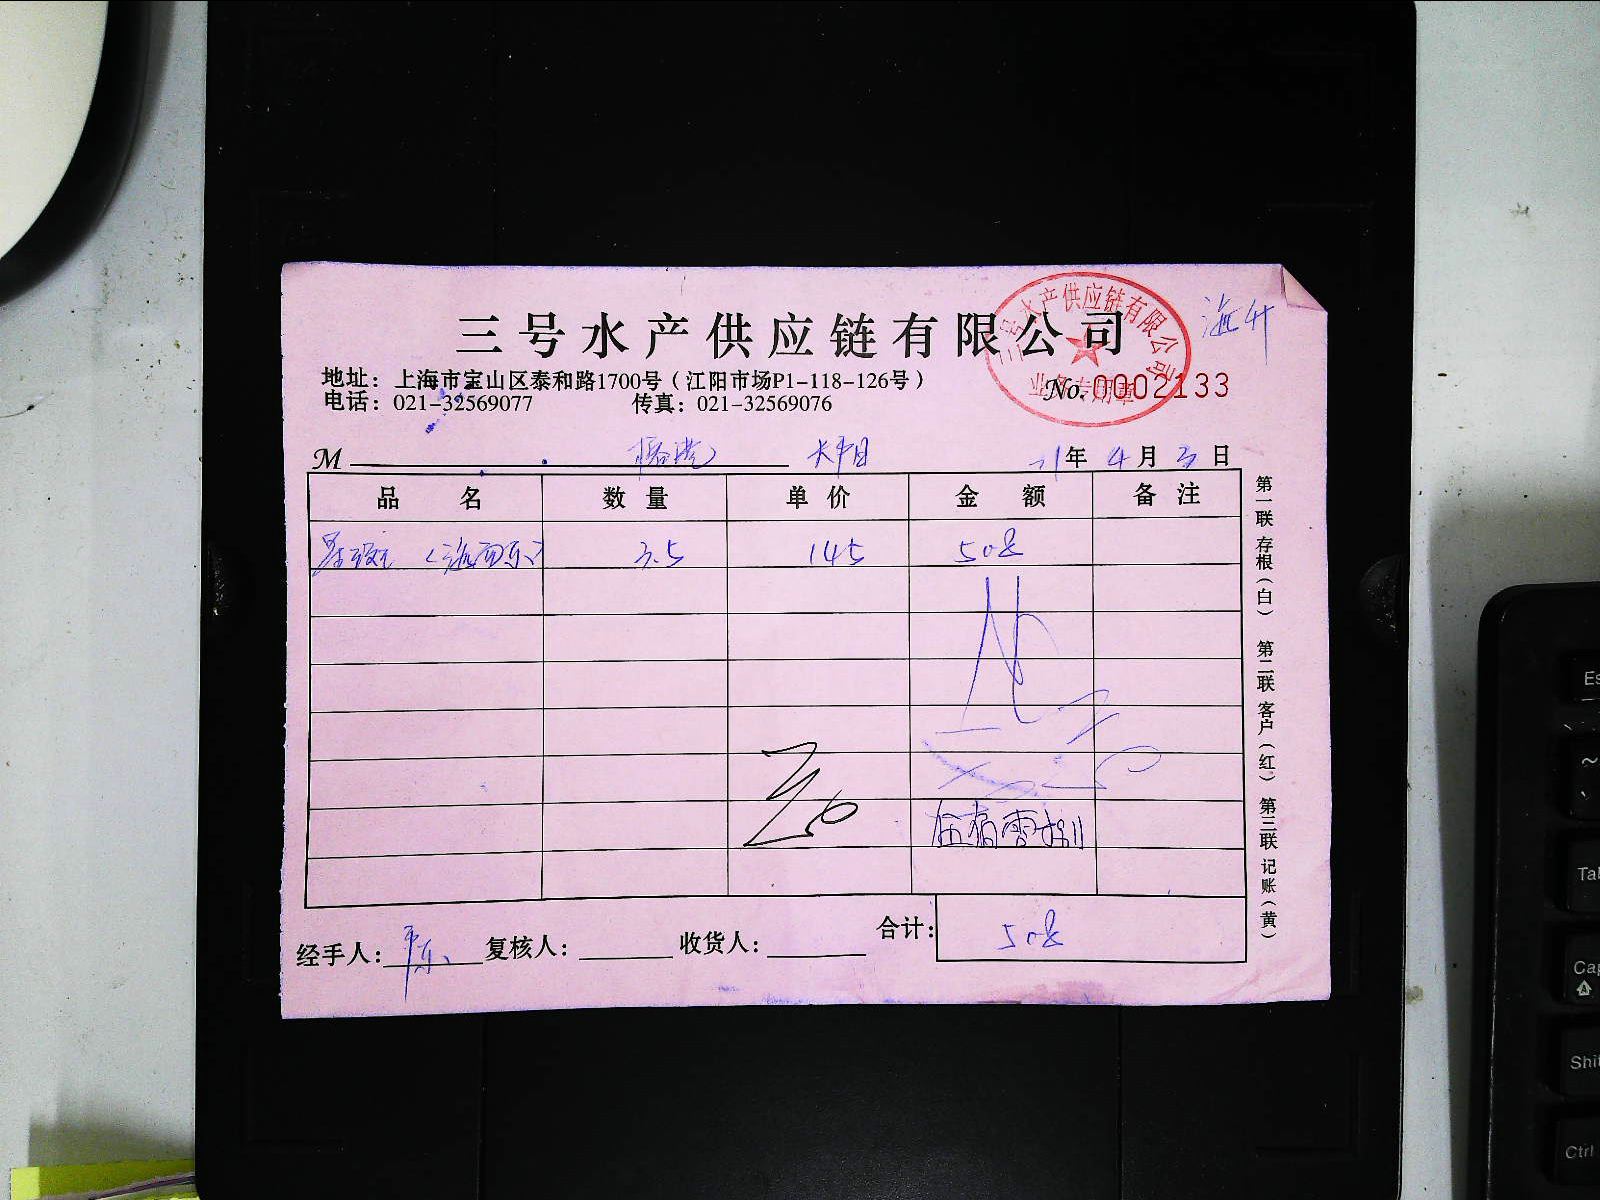 三号水产供应链有限公司
三号水产供应链有限公司
业务专用章
海升
地址：上海市宝山区泰和路1700号（江阳市场P1-118-126号）
No.0002133
电话：021-32569077 传真：021-32569076
M 21年4月3日
品名 数量 单价 金额 备注
3.5 145 508
伍佰零捌
合计：508
经手人： 复核人： 收货人：
第一联 存根（白） 第二联 客户（红） 第三联 记账（黄）
Es
~
Tab
Cap
Shi
Ctrl